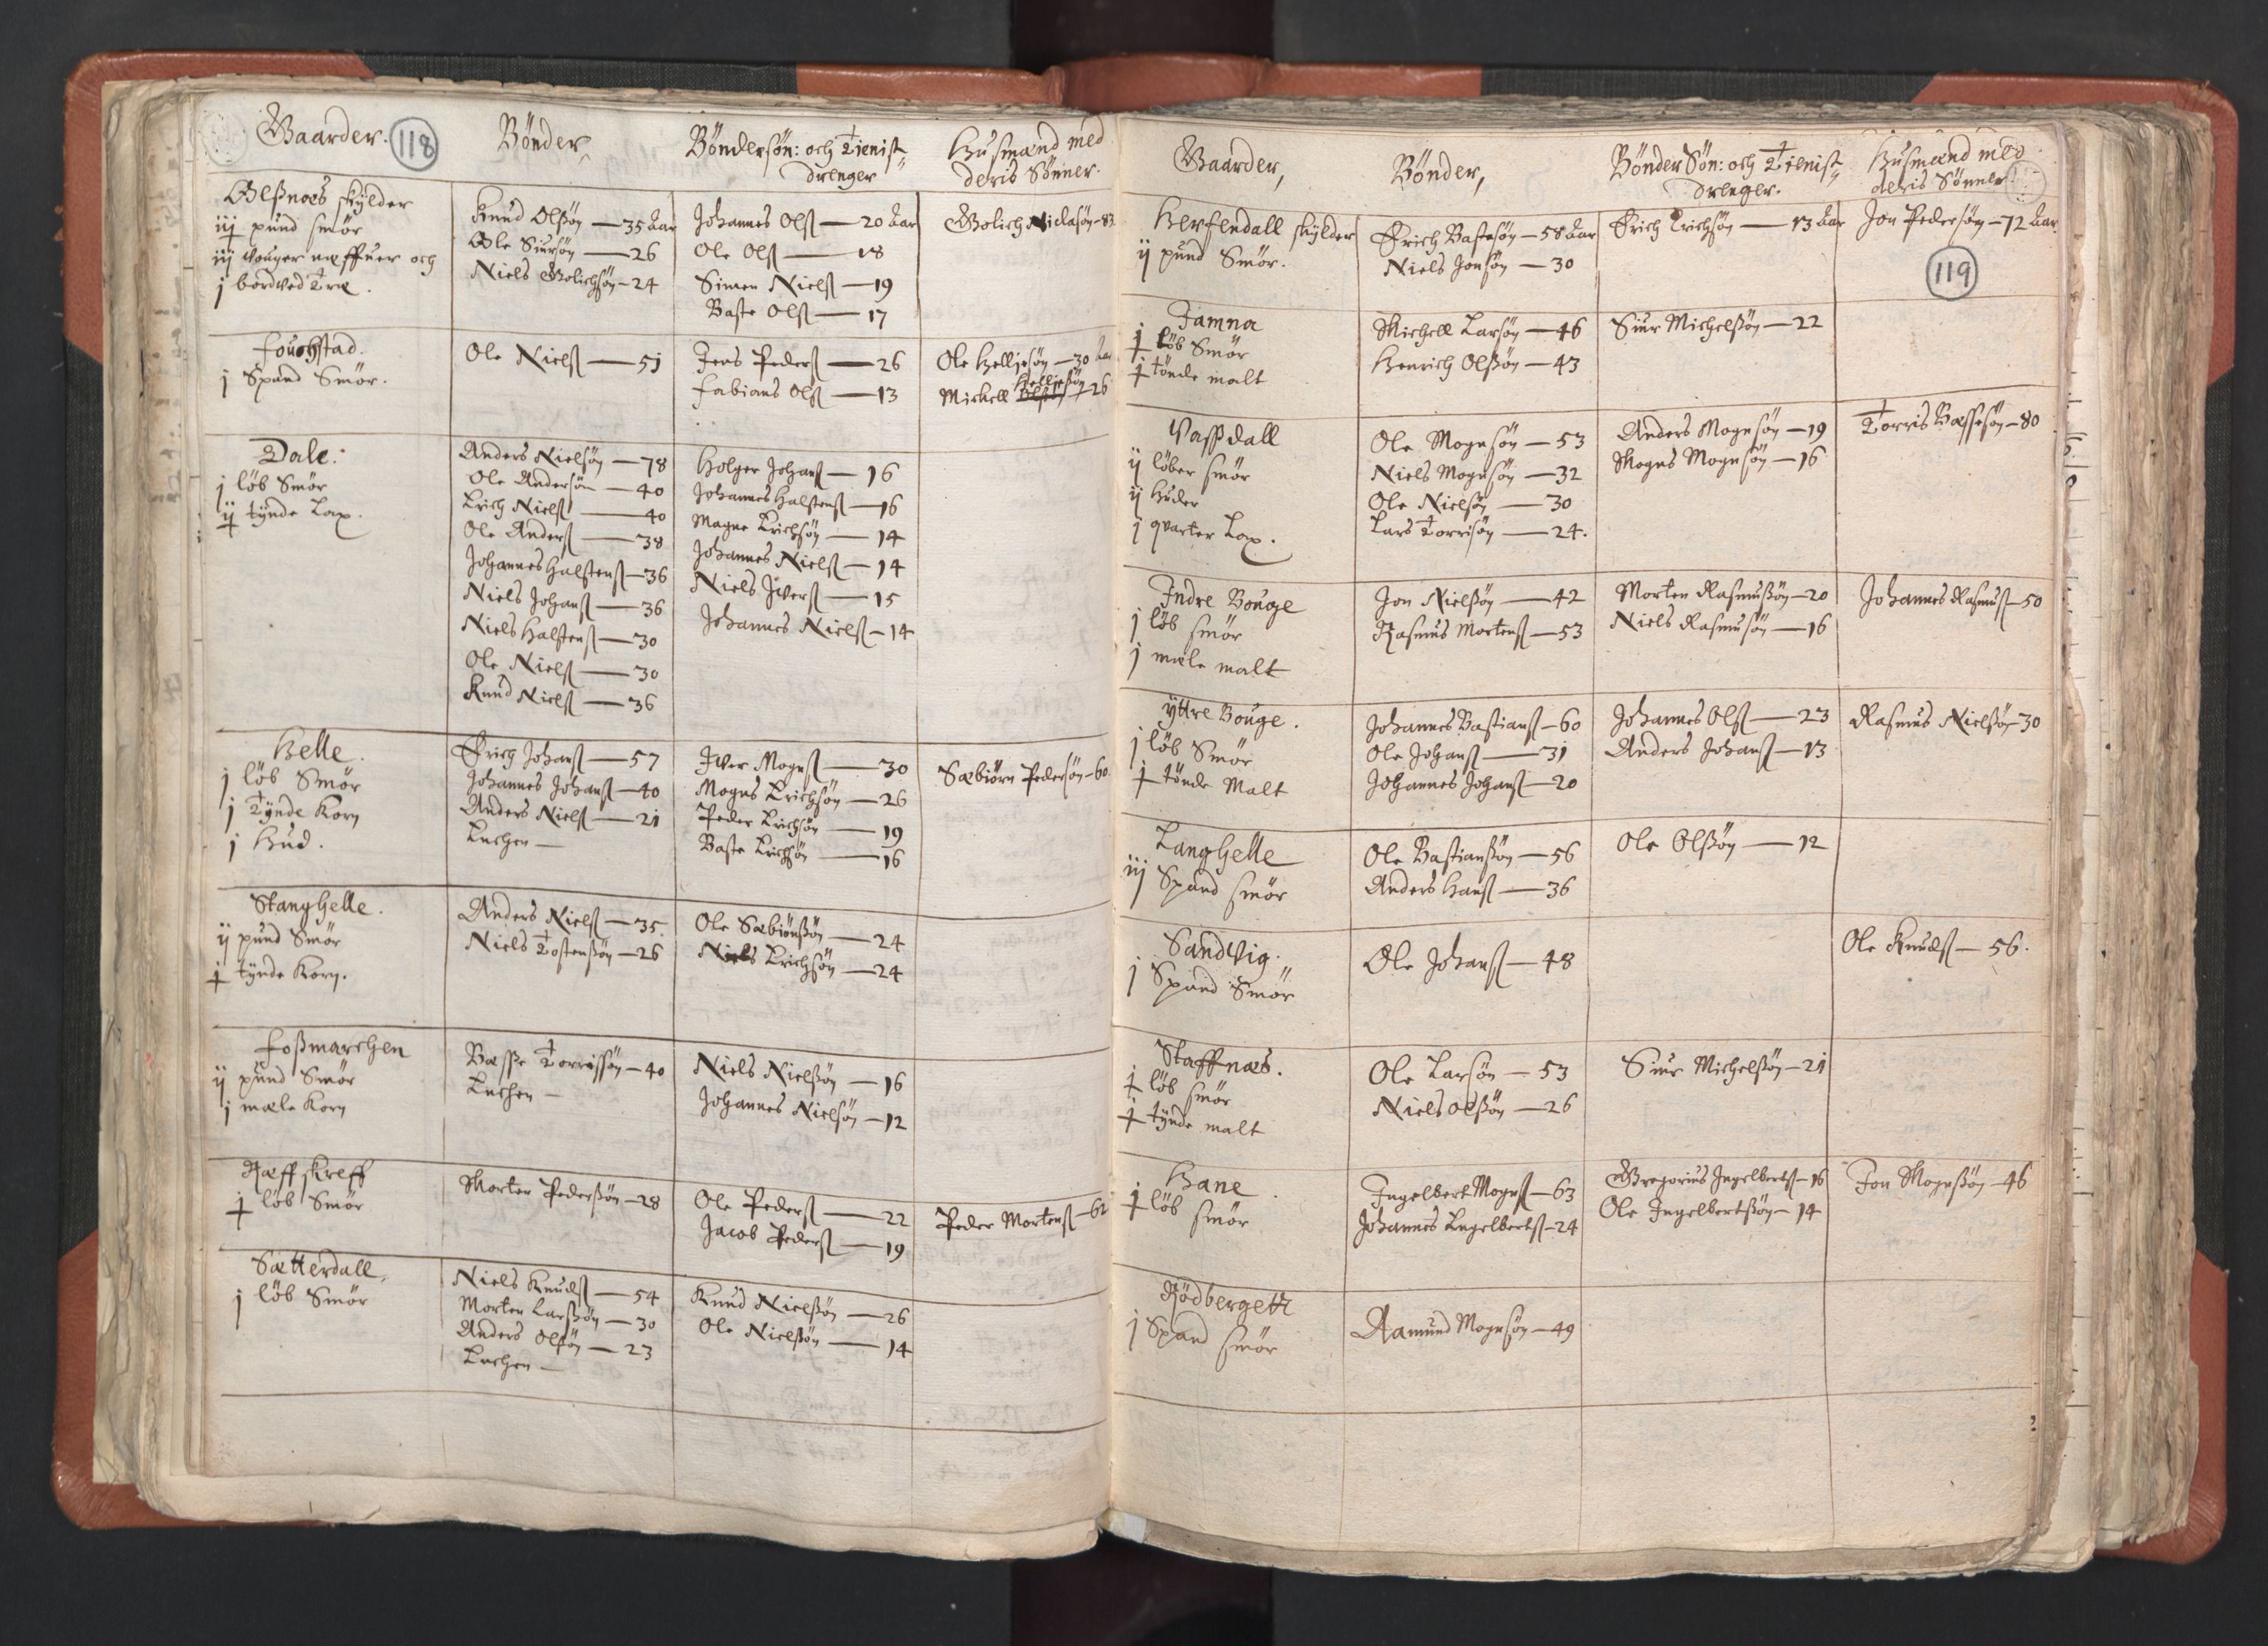 Gaarder.
118
Bönder,
Böndersön: och Tienist
drenger
Husmænd med
deris Sönner.
Olßnæs skylder
iij pund smör
iij vouger næffuer och
j bordved Træ.
Knud Olßön — 35 Aar
Ole Siursön — 26
Niels Golichsön — 24
Johannes Olß — 20 Aar
Ole Olß — 18
Simen Nielß — 19
Baste Olß — 17
Golich Niclasön — 83
Fouchstad.
j Spand Smör.
Ole Nielß — 51
Jens Pederß — 26
Fabians Olß — 13
Ole Helliesön — 30 Aar
Helliesön
Michell — 26
Dale.
j löb Smör
ij tynde Lax.
Anders Nielsön — 78
Ole Andersön — 40
Erich Nielß — 40
Ole Anderß — 38
Johannes Halstenß — 36
Niels Johanß — 36
Niels Halstenß — 30
Ole Nielß — 30
Knud Nielß — 36
Holger Johanß — 16
Johannes Halstenß — 16
Magne Erichsön — 14
Johannes Nielß — 14
Niels Iverß — 15
Johannes Nielß — 14
Helle.
j löb Smör
j Tynde Korn
j Hud.
Erich Johanß — 57
Johannes Johanß — 40
Anders Nielß — 21
Enchen —
Iver Mognß — 30
Mogns Erichsön — 26
Peder Erichsön — 19
Baste Erichsön — 16
Sæbiörn Pedersön — 60
Stanghelle.
ij pund Smör
½ tynde Korn.
Anders Nielß — 35.
Niels Tostensön — 26
Ole Sæbiönßön — 24
Niels Erichsön — 24
Foßmarchen
ij pund Smör
j mæle Korn
Bæsse Torrissön — 40
Enchen —
Niels Nielßön — 16
Johannes Nielsön — 12
Ræffskreff
½ löb Smör
Morten Pederßön — 28
Ole Pederß — 22
Jacob Pederß — 19
Peder Mortenß — 62
Sætterdall,
j löb Smör
Niels Knudß — 54
Morten Larßön — 30
Anders Olsön — 23
Enchen —
Knud Nielßön — 26
Ole Nielßön — 14
Gaarder,
Bönder,
Bönder Sön: och Tienist
drenger.
Husmænd med
deris Sönner
Herfendall skylder
ij pund Smör.
Erich Bastesön — 58 Aar
Niels Jonsön — 30
Erich Erichsön — 13 Aar
Jon Pedersön — 72 Aar
119
Jamna
½ löb Smör
½ tönde malt
Michell Larsön — 46
Henrich Olßön — 43
Siur Michelßön — 22
Vassdall
ij löber smör
ij Huder
j quarter Lax.
Ole Mognsön — 53
Niels Mognsön — 32
Ole Nielsön — 30
Lars Torrisön — 24.
Anders Mognsön — 19
Mogns Mognsön — 16
Torris Bæssesön — 80
Indre Bouge
j löb smör
j mæle malt
Jon Nielßön — 42
Rasmus Mortenß — 53
Morten Rasmußön — 20
Niels Rasmusön — 16
Johannes Rasmuß — 50
yttre Bouge.
j löb Smör
½ tönde Malt
Johannes Bastianß — 60
Ole Johanß — 31
Johannes Johanß — 20
Johannes Olß — 23
Anders Johanß — 13
Rasmus Nielsön 30
Langhelle
iij Spand smör
Ole Bastianßön — 56
Anders Hanß — 36
Ole Olßön — 12
Sandvig.
j Spand Smör
Ole Johanß — 48
Ole Knudß — 56.
Staffnæs.
½ löb smör
½ tynde malt
Ole Larsön — 53
Niels Olßön — 26
Siur Michelßön — 21
Hane
½ löb smör
Ingelbert Mognß — 63
Johannes Engelbertß — 24
Gregorius Ingelbertß — 16
Ole Ingelbertßön — 14
Jon Mognßön — 46
Rödbergett
j Spand smör
Aamund Mognsön — 49